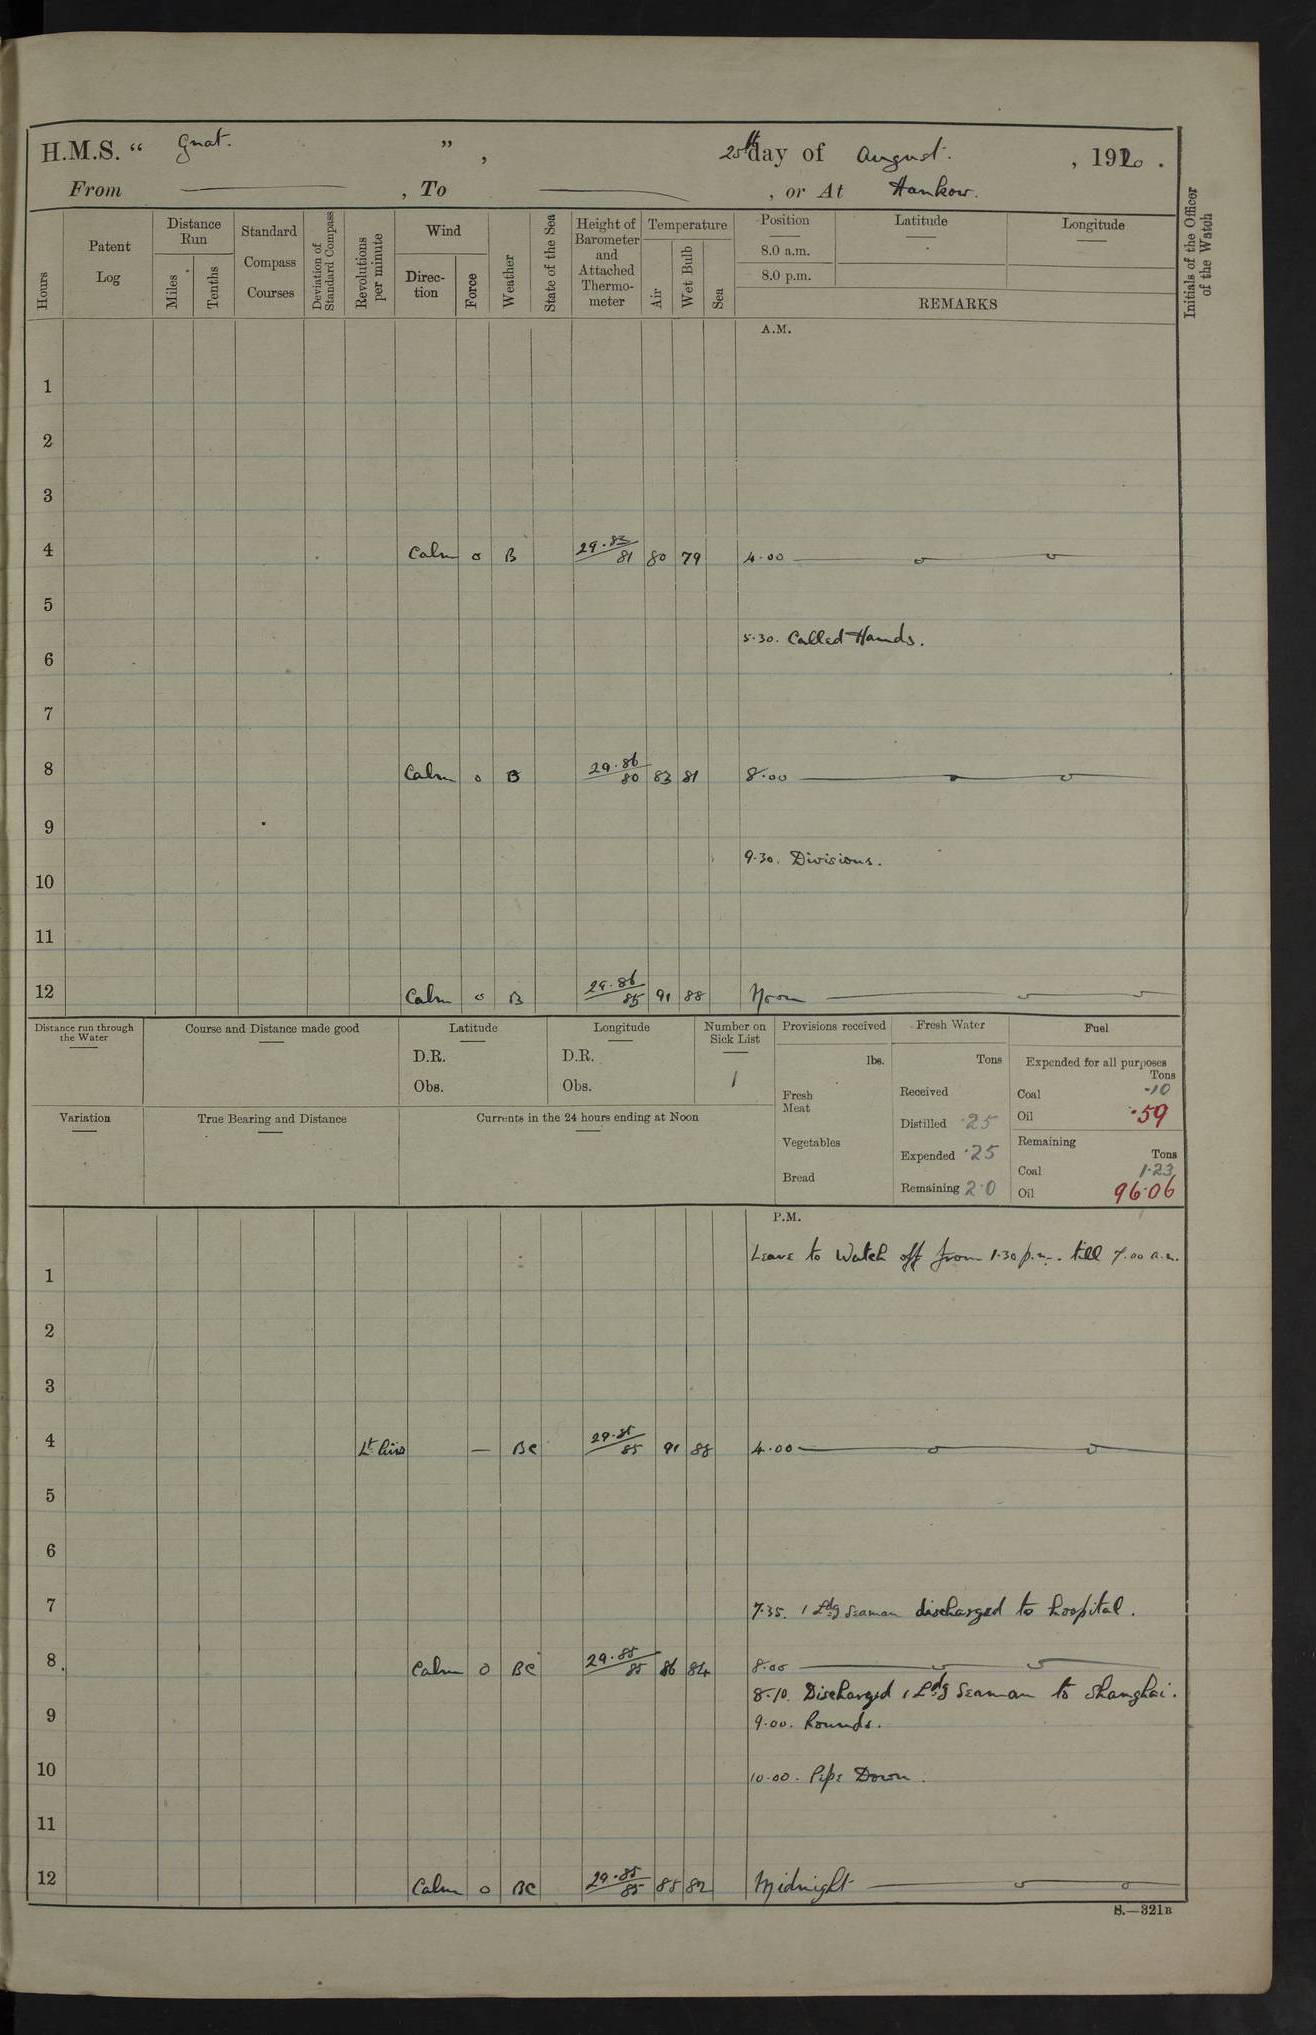 H.M.S. “ Gnat. ” , 25th day of August. , 1920 .
From ——— , To ——— , or At Hankow.
Hours
Patent Log
Distance Run
Miles
Tenths
Standard Compass Courses
Deviation of Standard Compass
Revolutions per minute
Wind
Direction
Force
Weather
State of the Sea
Height of Barometer and Attached Thermometer
Temperature
Air
Wet Bulb
Sea
Position
8.0 a.m.
8.0 p.m.
Latitude
Longitude
REMARKS
Initials of the Officer of the Watch
A.M.
1
2
3
4 Calm 0 B 29.83/81 80 79 4.00 ———
5
5.30. Called Hands.
6
7
8 Calm 0 B 29.86/80 83 81 8.00 ———
9
9.30. Divisions.
10
11
12 Calm 0 B 29.86/85 91 88 Noon ———
Distance run through the Water
Course and Distance made good
Latitude
D.R.
Obs.
Longitude
D.R.
Obs.
Number on Sick List
1
Variation
True Bearing and Distance
Currents in the 24 hours ending at Noon
Provisions received
lbs.
Fresh Meat
Vegetables
Bread
Fresh Water
Tons
Received
Distilled .25
Expended .25
Remaining 2.0
Fuel
Expended for all purposes
Tons
Coal .10
Oil .59
Remaining
Tons
Coal 1.23
Oil 96.06
P.M.
Leave to Watch off from 1.30 p.m. till 7.00 a.m.
1
2
3
4 Lt Airs — BC 29.85/85 91 88 4.00 ———
5
6
7
7.35. 1 Ldg Seaman discharged to hospital.
8 Calm 0 BC 29.85/85 86 84 8.00 ———
8.10. Discharged 1 Ldg Seaman to Shanghai.
9
9.00. Rounds.
10 10.00. Pipe Down.
11
12 Calm 0 BC 29.85/85 85 82 Midnight ———
S.—321B